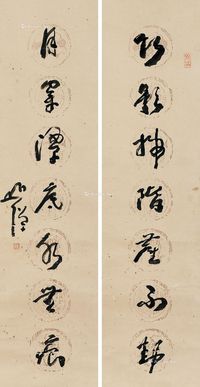 竹影拂階塵不動
月穿潭底水無痕